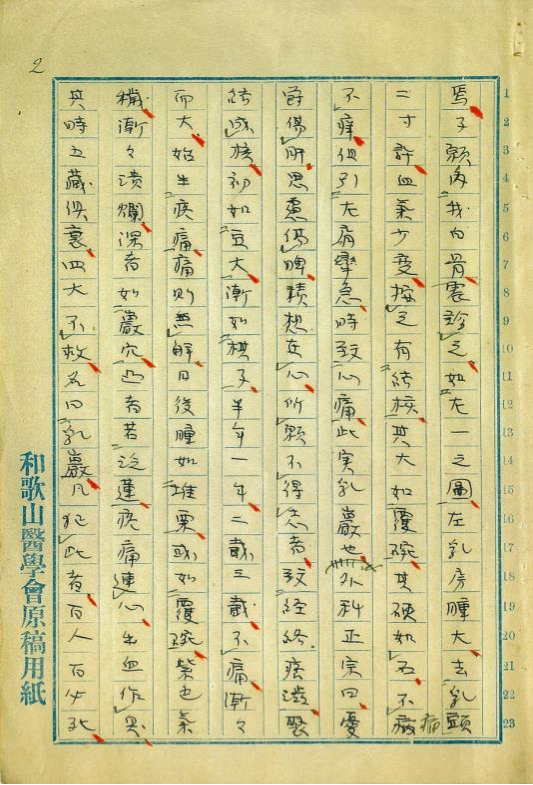 2
之如左一之圖左乳房腫大去乳頭
二寸許少変按之有結核其大如覆碗其硬如石不痛
不痒但引左肩攣急時致心痛此実乳巖也外科正宗曰憂
欝傷肝思慮傷脾積想在心所願不得志者致経絡痞澁聚
結成核初如豆大漸如棋子半年一年二載三載不痛漸々
而大始生疼痛痛則無解日後腫如堆栗或如覆碗紫色気
穢漸々潰爛深者如巖穴凸者若泛蓮疼痛連心出血作臭
其時五藏倶衰四大不救名曰乳巖凡犯此者百人百必死
和歌山醫學會原稿用紙
1
2
3
4
5
6
7
8
9
10
11
12
13
14
15
16
17
18
19
20
21
22
23